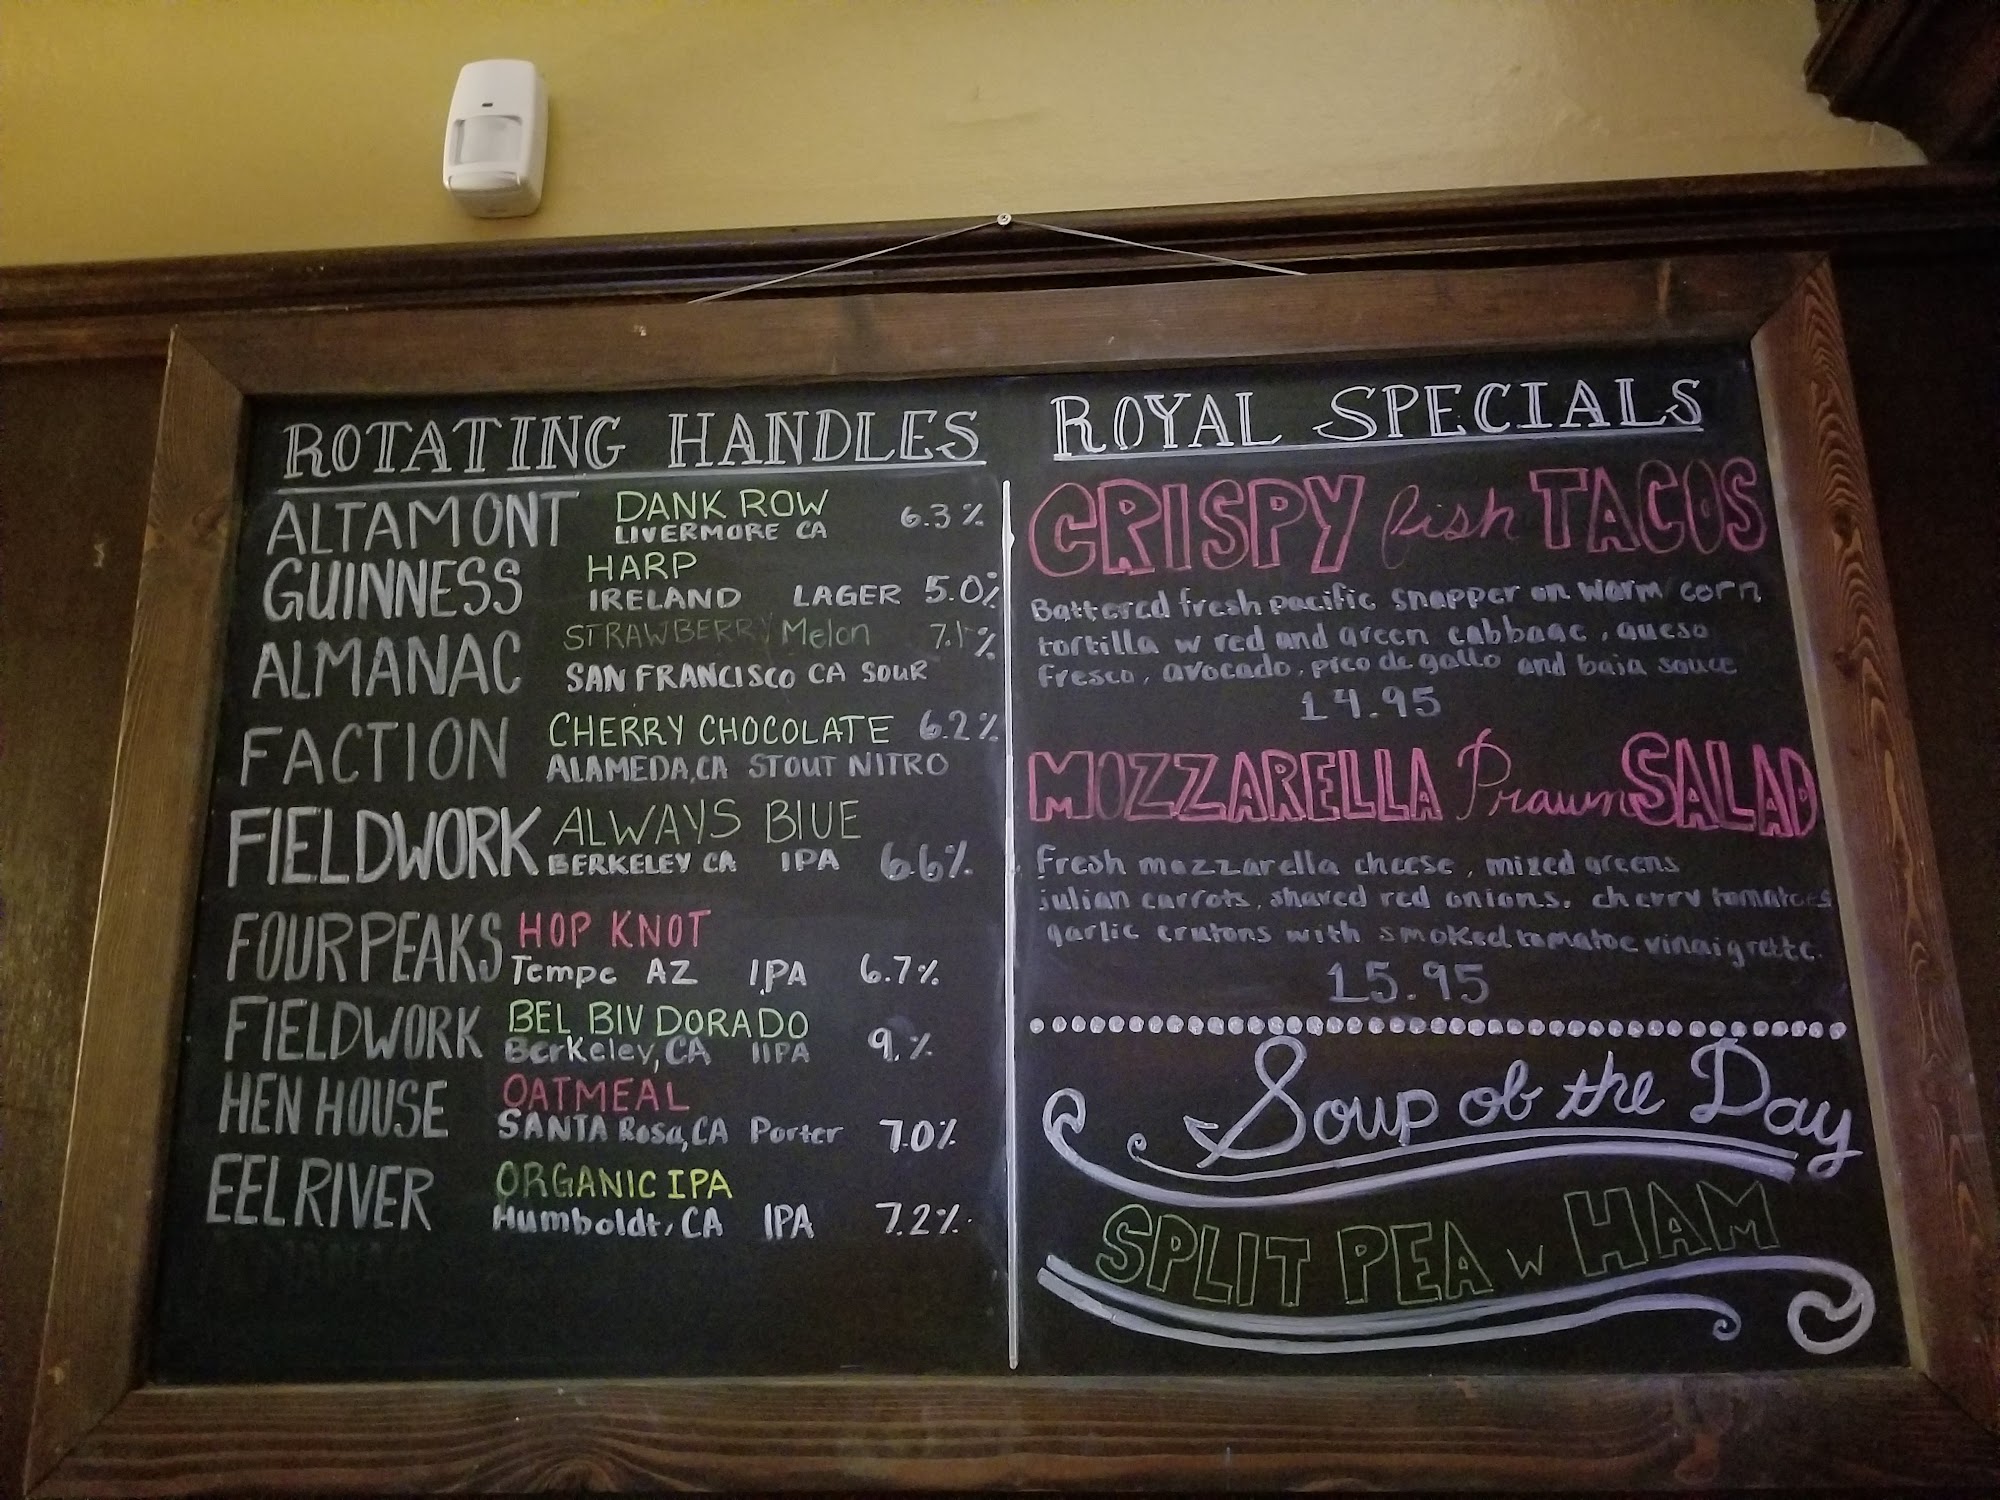 ROTATING HANDLES
ALTAMONT DANK ROW 6.3%
LIVERMORE CA
GUINNESS HARP
IRELAND LAGER 5.0%
ALMANAC STRAWBERRY Melon 7.1%
SAN FRANCISCO CA SOUR
FACTION CHERRY CHOCOLATE 6.2%
ALAMEDA, CA STOUT NITRO
FIELDWORK ALWAYS BLUE
BERKELEY CA IPA 6.6%
FOUR PEAKS HOP KNOT
Tempe AZ IPA 6.7%
FIELDWORK BEL BIV DORADO
Berkeley, CA IIPA 9.%
HEN HOUSE OATMEAL
SANTA Rosa, CA Porter 7.0%
EEL RIVER ORGANIC IPA
Humboldt, CA IPA 7.2%
ROYAL SPECIALS
CRISPY fish TACOS
Battered fresh pacific snapper on warm corn
tortilla w red and green cabbage, queso
fresco, avocado, pico de gallo and baja sauce
14.95
MOZZARELLA Prawn SALAD
Fresh mozzarella cheese, mixed greens
julian carrots, shaved red onions, cherry tomatoes
garlic crutons with smoked tomatoe vinaigrette.
15.95
Soup of the Day
SPLIT PEA w HAM